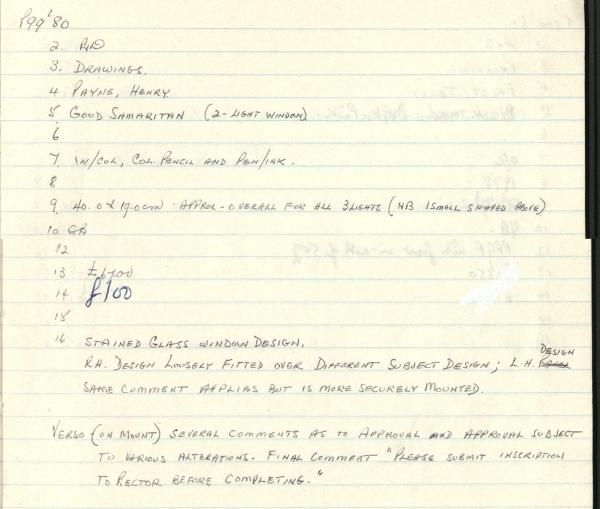 P99'80
2. P+D
3. DRAWINGS.
4 PAYNE, HENRY
5 GOOD SAMARITAN (2-LIGHT WINDOW)
6
7. W/COL, COL PENCIL AND PEN/INK.
8
9. 40.0 x 19.0cm - APPROX - OVERALL FOR ALL 3 LIGHTS (NB 1 SMALL SHAPED ABOVE)
10 GB
12
13 £67.00
14 £100
15
16 STAINED GLASS WINDOW DESIGN.
R.H. DESIGN LOOSELY FITTED OVER DIFFERENT SUBJECT DESIGN; L.H. PANEL DESIGN
SAME COMMENT APPLIES BUT IS MORE SECURELY MOUNTED.
VERSO (ON MOUNT) SEVERAL COMMENTS AS TO APPROVAL AND APPROVAL SUBJECT
TO VARIOUS ALTERATIONS. FINAL COMMENT "PLEASE SUBMIT INSCRIPTION
TO RECTOR BEFORE COMPLETING."